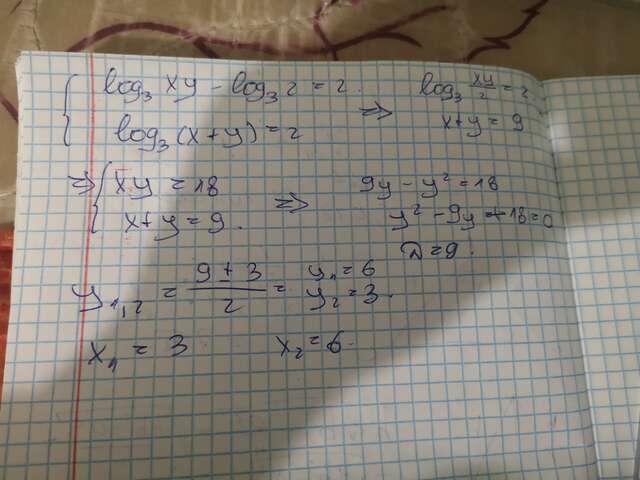 log₃ xy - log₃ 2 = 2. ⇒ log₃ xy/2 = 2
log₃ (x+y) = 2 x+y = 9
⇒ { xy = 18 ⇒ 9y - y² = 18
x+y = 9. y² - 9y + 18 = 0
D = 9.
y₁,₂ = (9 ± 3)/2 = y₁ = 6
y₂ = 3.
x₁ = 3 x₂ = 6.